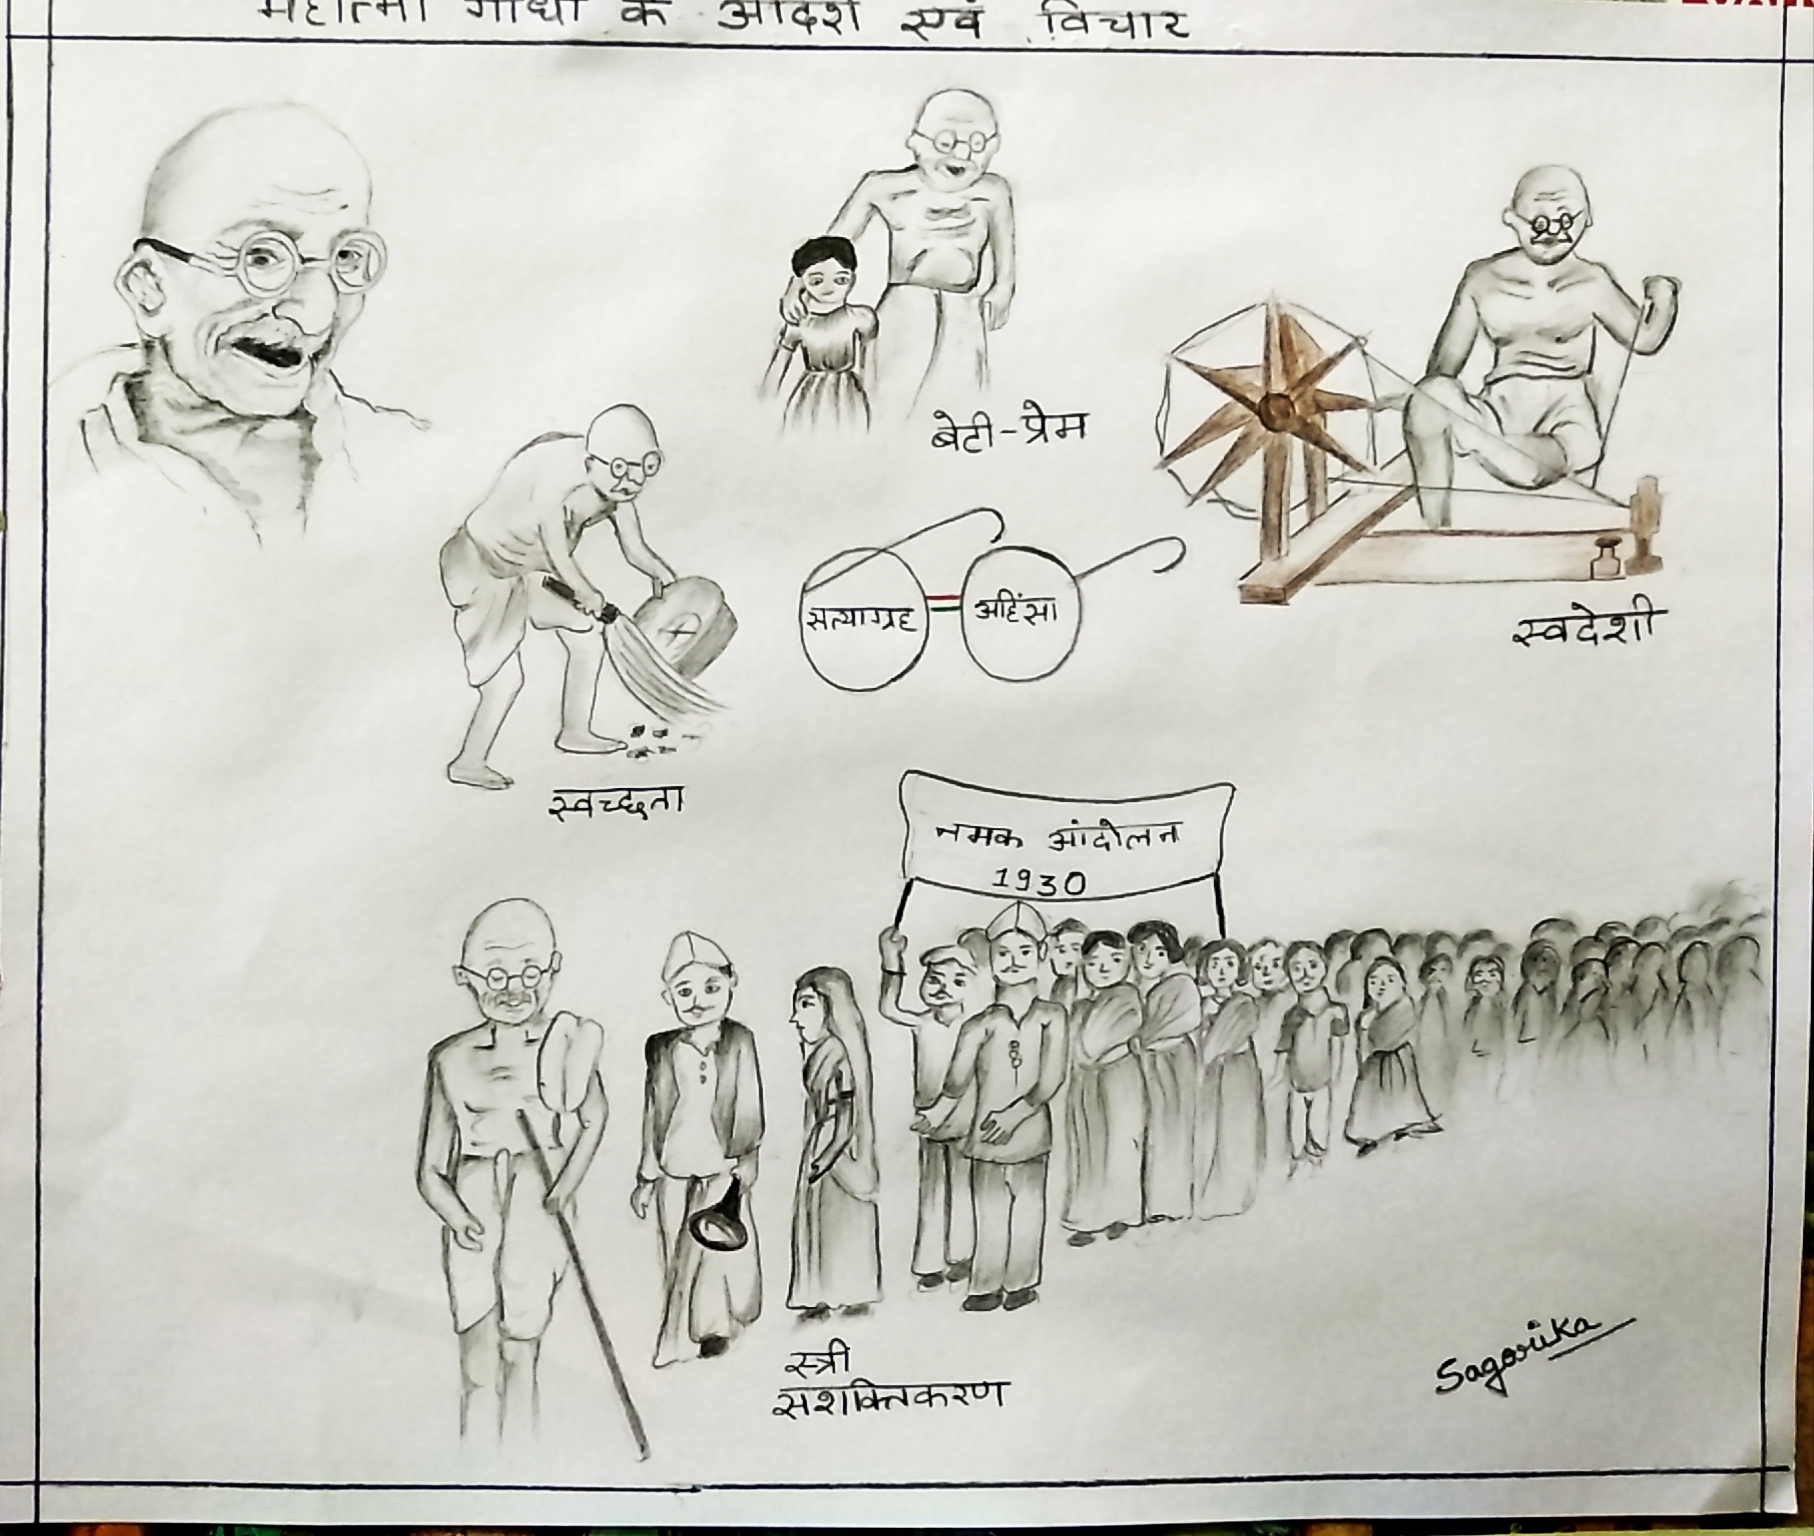 महात्मा गांधी के आदर्श एवं विचार
बेटी-प्रेम
सत्याग्रह अहिंसा
स्वदेशी
स्वच्छता
नमक आंदोलन
1930
स्त्री
सशक्तिकरण
Sagarika